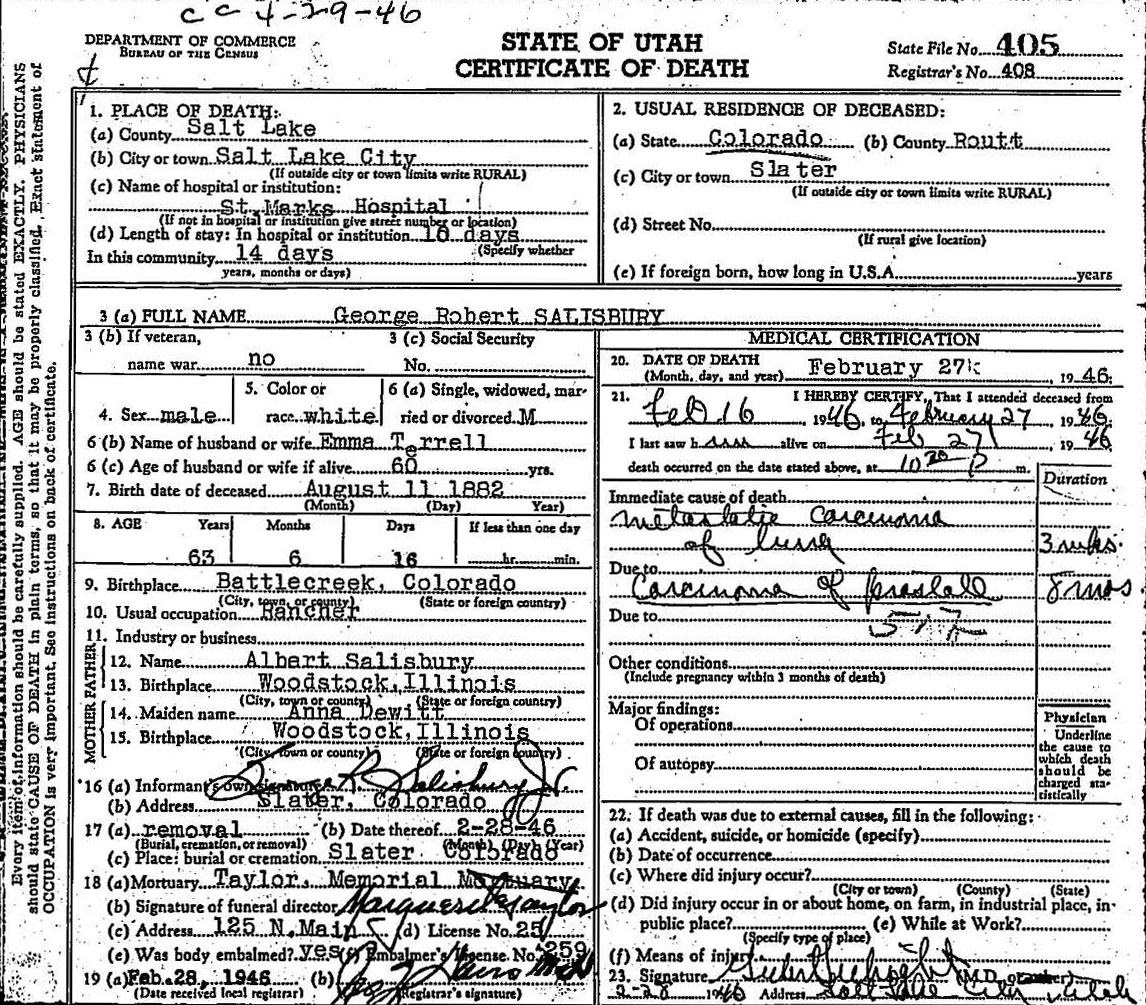 cc 4-29-46
DEPARTMENT OF COMMERCE
BUREAU OF THE CENSUS
STATE OF UTAH
CERTIFICATE OF DEATH
State File No. 405
Registrar's No. 408
Every item of information should be carefully supplied. AGE should be stated EXACTLY. PHYSICIANS
should state CAUSE OF DEATH in plain terms, so that it may be properly classified. Exact statement of
OCCUPATION is very important. See instructions on back of certificate.
1. PLACE OF DEATH:
(a) County Salt Lake
(b) City or town Salt Lake City
(If outside city or town limits write RURAL)
(c) Name of hospital or institution:
St. Marks Hospital
(If not in hospital or institution give street number or location)
(d) Length of stay: In hospital or institution 10 days
(Specify whether
In this community 14 days
years, months or days)
2. USUAL RESIDENCE OF DECEASED:
(a) State Colorado (b) County Routt
(c) City or town Slater
(If outside city or town limits write RURAL)
(d) Street No.
(If rural give location)
(e) If foreign born, how long in U.S.A. years
3 (a) FULL NAME George Robert SALISBURY
3 (b) If veteran,
name war no
3 (c) Social Security
No.
4. Sex male
5. Color or
race white
6 (a) Single, widowed, mar-
ried or divorced M
6 (b) Name of husband or wife Emma Terrell
6 (c) Age of husband or wife if alive 60 yrs.
7. Birth date of deceased August 11 1882
(Month) (Day) Year)
8. AGE Years Months Days If less than one day
63 6 16 hr. min.
9. Birthplace Battlecreek, Colorado
(City, town, or county) (State or foreign country)
10. Usual occupation Rancher
11. Industry or business
FATHER
12. Name Albert Salisbury
13. Birthplace Woodstock, Illinois
(City, town or county) (State or foreign country)
MOTHER
14. Maiden name Anna Dewitt
15. Birthplace Woodstock, Illinois
(City, town or county) (State or foreign country)
16 (a) Informant's own signature George R. Salisbury Jr.
(b) Address Slater, Colorado
17 (a) removal (b) Date thereof 2-28-46
(Burial, cremation, or removal) (Month) (Day) (Year)
(c) Place: burial or cremation Slater Colorado
18 (a) Mortuary Taylor Memorial Mortuary
(b) Signature of funeral director Marguerite Taylor
(c) Address 125 N. Main (d) License No. 25
(e) Was body embalmed? yes (f) Embalmer's License No. 259
19 (a) Feb. 28, 1946 (b)
(Date received local registrar) (Registrar's signature)
MEDICAL CERTIFICATION
20. DATE OF DEATH
(Month, day, and year) February 27 , 1946
21. I HEREBY CERTIFY, That I attended deceased from
Feb 16 1946, to February 27 1946
I last saw h im alive on Feb 27 1946
death occurred on the date stated above, at 10 20 P m.
Duration
Immediate cause of death
metastatic carcinoma
of lung 3 wks.
Due to
Carcinoma of prostate 8 mos
Due to
Other conditions
(Include pregnancy within 3 months of death)
Major findings:
Of operations
Of autopsy
Physician
Underline
the cause to
which death
should be
charged sta-
tistically
22. If death was due to external causes, fill in the following:
(a) Accident, suicide, or homicide (specify)
(b) Date of occurrence
(c) Where did injury occur?
(City or town) (County) (State)
(d) Did injury occur in or about home, on farm, in industrial place, in
public place? (e) While at Work?
(Specify type of place)
(f) Means of injury
23. Signature M.D. or other
2-28 1946 Address Salt Lake City Utah